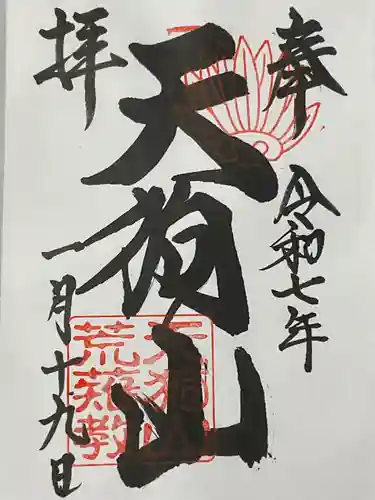 奉拝
天狗山
令和七年
一月十九日
天狗山
荒薙教